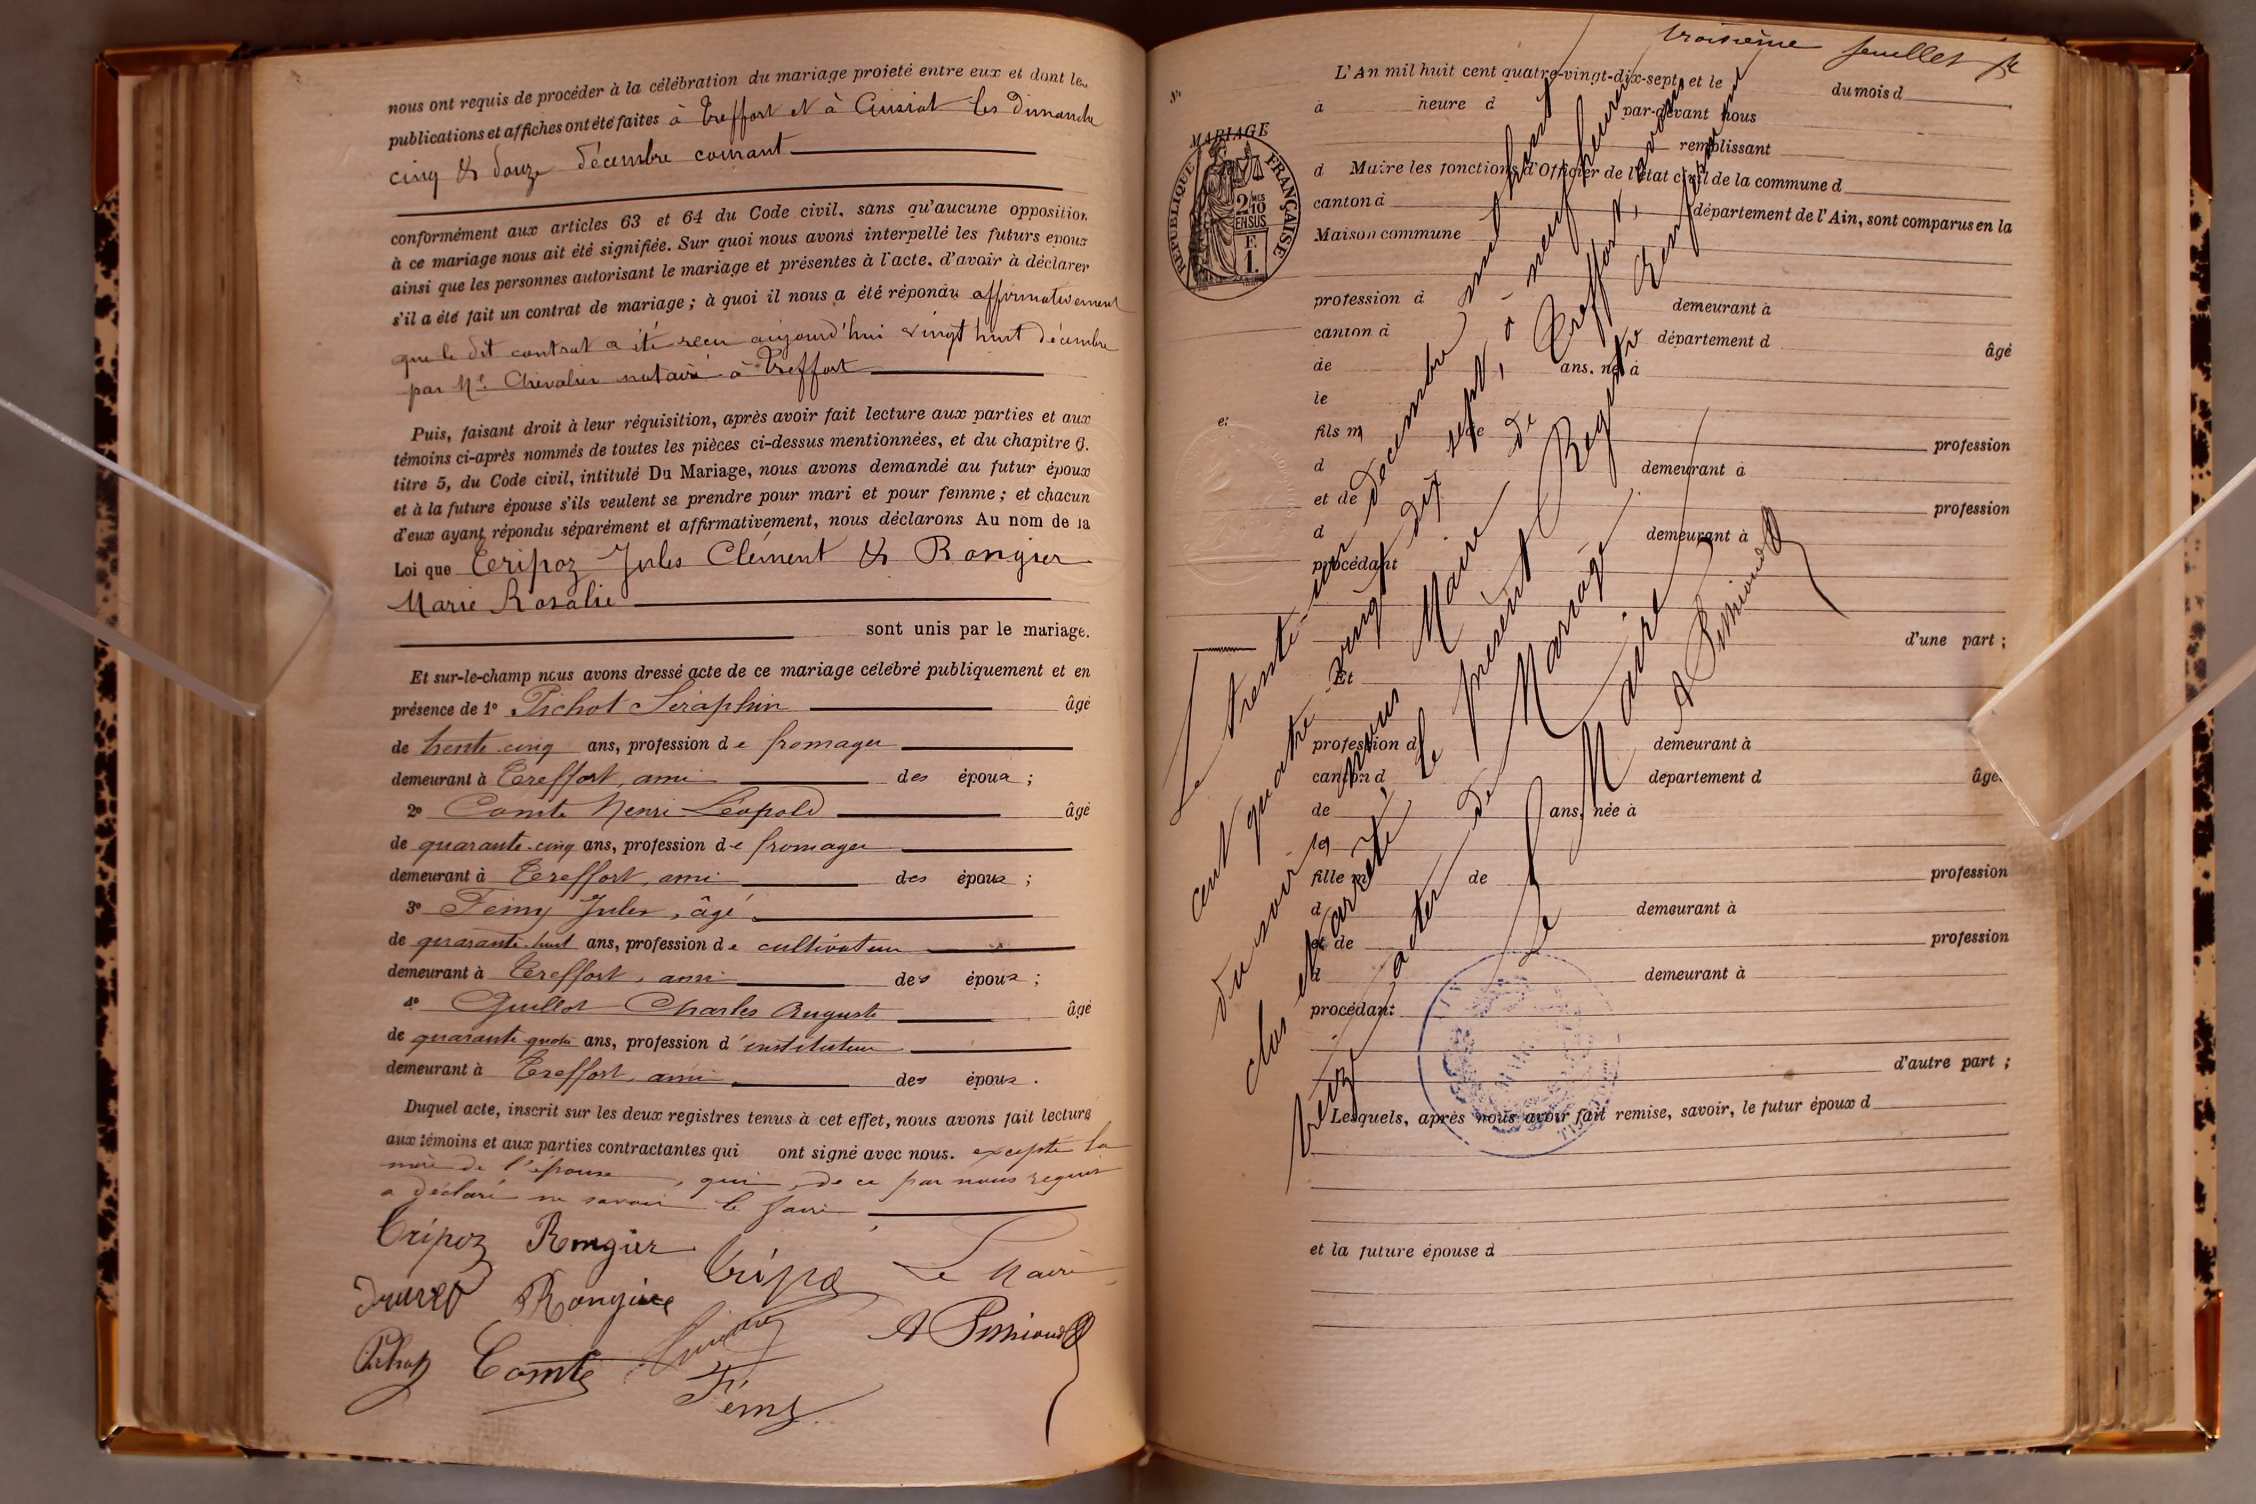 nous ont requis de procéder à la célébration du mariage projeté entre eux et dont les
publications et affiches ont été faites à Treffort et à Cuisiat les dimanche
cinq & douze décembre courant
conformément aux articles 63 et 64 du Code civil, sans qu'aucune opposition
à ce mariage nous ait été signifiée. Sur quoi nous avons interpellé les futurs époux
ainsi que les personnes autorisant le mariage et présentes à l'acte, d'avoir à déclarer
s'il a été fait un contrat de mariage ; à quoi il nous a été répondu affirmativement
que le dit contrat a été reçu aujourd'hui vingt huit décembre
par Me. Chevalier notaire à Treffort
Puis, faisant droit à leur réquisition, après avoir fait lecture aux parties et aux
témoins ci-après nommés de toutes les pièces ci-dessus mentionnées, et du chapitre 6.
titre 5, du Code civil, intitulé Du Mariage, nous avons demandé au futur époux
et à la future épouse s'ils veulent se prendre pour mari et pour femme ; et chacun
d'eux ayant répondu séparément et affirmativement, nous déclarons Au nom de la
Loi que Tripoz Jules Clément & Rongier
Marie Rosalie
sont unis par le mariage.
Et sur-le-champ nous avons dressé acte de ce mariage célébré publiquement et en
présence de 1o Pichot Séraphin âgé
de trente-cinq ans, profession de fromager
demeurant à Treffort, ami des époux ;
2o Comte Henri Léopold âgé
de quarante-cinq ans, profession de fromager
demeurant à Treffort, ami des époux ;
3o Fémy Jules, âgé
de quarante-huit ans, profession de cultivateur
demeurant à Treffort, ami des époux ;
4o Guillot Charles Auguste âgé
de quarante-quatre ans, profession d'instituteur
demeurant à Treffort, ami des époux .
Duquel acte, inscrit sur les deux registres tenus à cet effet, nous avons fait lecture
aux témoins et aux parties contractantes qui ont signé avec nous. excepté la
mère de l'épouse, qui, de ce par nous requis
a déclaré ne savoir le faire
Tripoz Rongier Tripoz Le Maire
Rongier A Simioud
Pichot Comte
Fémy
troisième feuillet
L'An mil huit cent quatre-vingt-dix-sept et le du mois d
à heure d par-devant nous
remplissant
d Maire les fonctions d'Officier de l'état civil de la commune d
canton d département de l'Ain, sont comparus en la
Maison commune
MARIAGE
RÉPUBLIQUE FRANÇAISE
2/10 EN SUS
F. 1.
profession d demeurant à
canton d département d âgé
de ans. né à
le
fils m de profession
d demeurant à
et de profession
d demeurant à
procédant
d'une part ;
Et
profession d demeurant à
canton d département d âgée
de ans, née à
le
fille m de profession
d demeurant à
et de profession
d demeurant à
procédant
d'autre part ;
Lesquels, après nous avoir fait remise, savoir, le futur époux d
et la future épouse d
Le trente-un décembre mil huit
cent quatre-vingt dix sept, à neuf heures
du soir, nous Maire de Treffort, avons
clos et arrêté le présent Registre
actes de Mariage
Le Maire
A Simioud